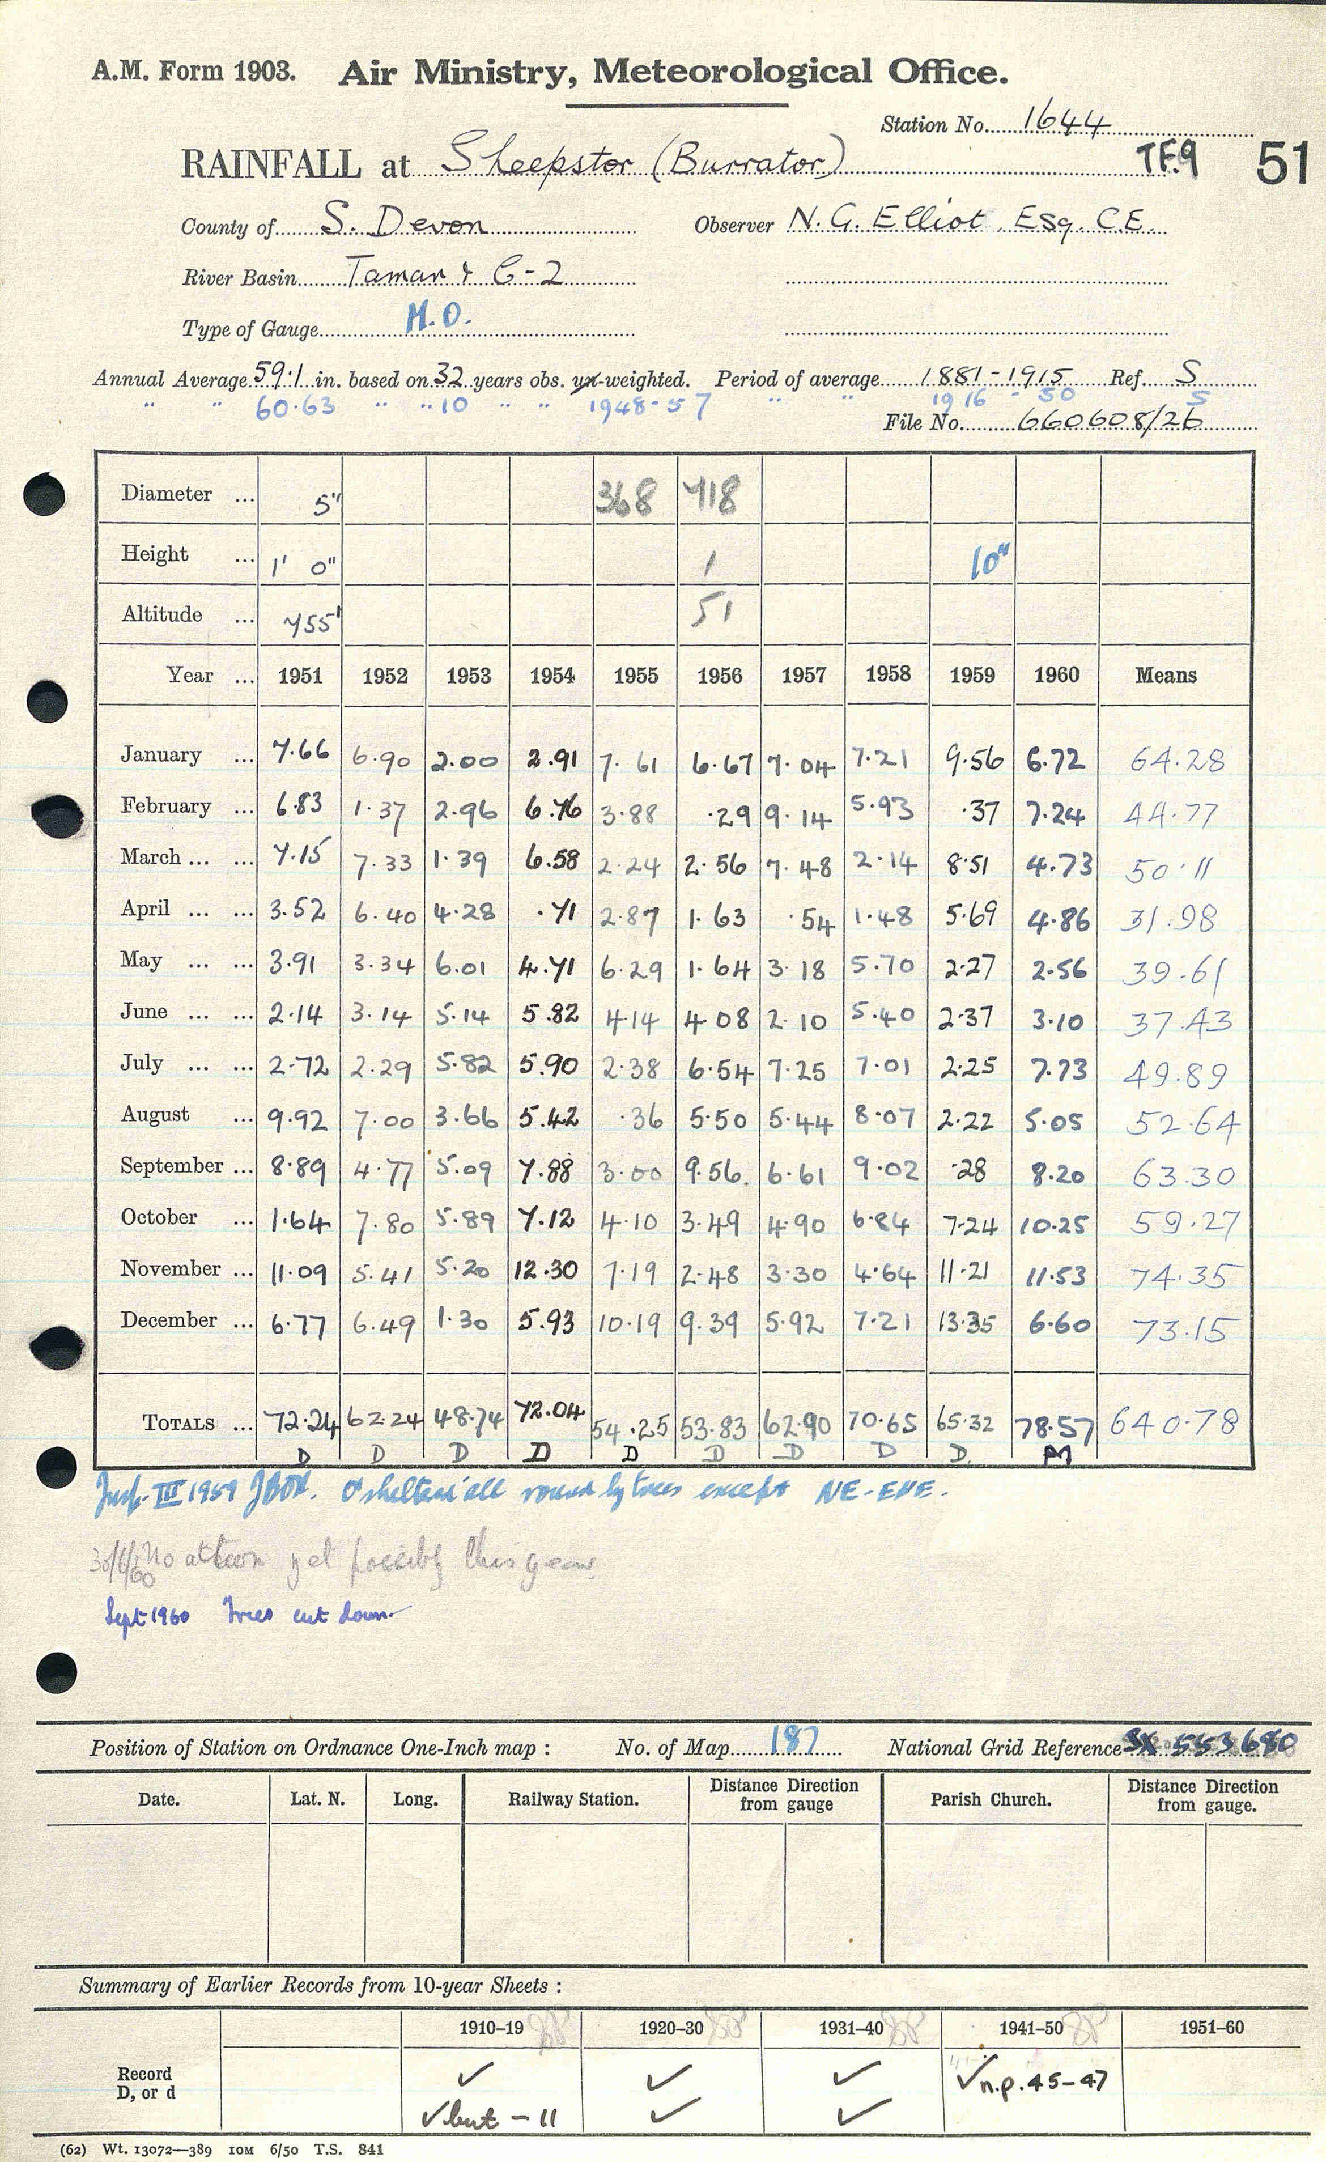 A.M. Form 1903. Air Ministry, Meteorological Office.
Station No. 1644
RAINFALL at Sheepstor (Burrator) TF.9 51
County of S. Devon Observer N. G. Elliot, Esq. C.E.
River Basin Tamar & 6-2
Type of Gauge M.O.
Annual Average 59.1 in. based on 32 years obs. un-weighted. Period of average 1881-1915 Ref. S
" " 60.63 " " 10 " " 1948-57 " " 1916-50 S
File No. 660608/26
Diameter ... 5" 368 718
Height ... 1' 0" 1 10"
Altitude ... 755' 51
Year ... 1951 1952 1953 1954 1955 1956 1957 1958 1959 1960 Means
January ... 7.66 6.90 2.00 2.91 7.61 6.67 7.04 7.21 9.56 6.72 64.28
February ... 6.83 1.37 2.96 6.76 3.88 .29 9.14 5.93 .37 7.24 44.77
March ... ... 7.15 7.33 1.39 6.58 2.24 2.56 7.48 2.14 8.51 4.73 50.11
April ... ... 3.52 6.40 4.28 .71 2.87 1.63 .54 1.48 5.69 4.86 31.98
May ... ... 3.91 3.34 6.01 4.71 6.29 1.64 3.18 5.70 2.27 2.56 39.61
June ... ... 2.14 3.14 5.14 5.82 4.14 4.08 2.10 5.40 2.37 3.10 37.43
July ... ... 2.72 2.29 5.82 5.90 2.38 6.54 7.25 7.01 2.25 7.73 49.89
August ... 9.92 7.00 3.66 5.42 .36 5.50 5.44 8.07 2.22 5.05 52.64
September ... 8.89 4.77 5.09 7.88 3.00 9.56 6.61 9.02 .28 8.20 63.30
October ... 1.64 7.80 5.89 7.12 4.10 3.49 4.90 6.84 7.24 10.25 59.27
November ... 11.09 5.41 5.20 12.30 7.19 2.48 3.30 4.64 11.21 11.53 74.35
December ... 6.77 6.49 1.30 5.93 10.19 9.39 5.92 7.21 13.35 6.60 73.15
TOTALS ... 72.24 62.24 48.74 72.04 54.25 53.83 62.90 70.65 65.32 78.57 640.78
D D D D D D D D D M
Insp. III 1959 sheltered all round by trees except NE-ENE.
No action yet possibly this year
Sept 1960 Trees cut down
Position of Station on Ordnance One-Inch map : No. of Map 187 National Grid Reference SX 553680
Date. Lat. N. Long. Railway Station. Distance from gauge Direction Parish Church. Distance from gauge. Direction
Summary of Earlier Records from 10-year Sheets :
1910-19 1920-30 1931-40 1941-50 1951-60
Record ✓ ✓ ✓ ✓ n.p. 45-47
D, or d ✓ but - 11 ✓ ✓
(62) Wt. 13072—389 10M 6/50 T.S. 841